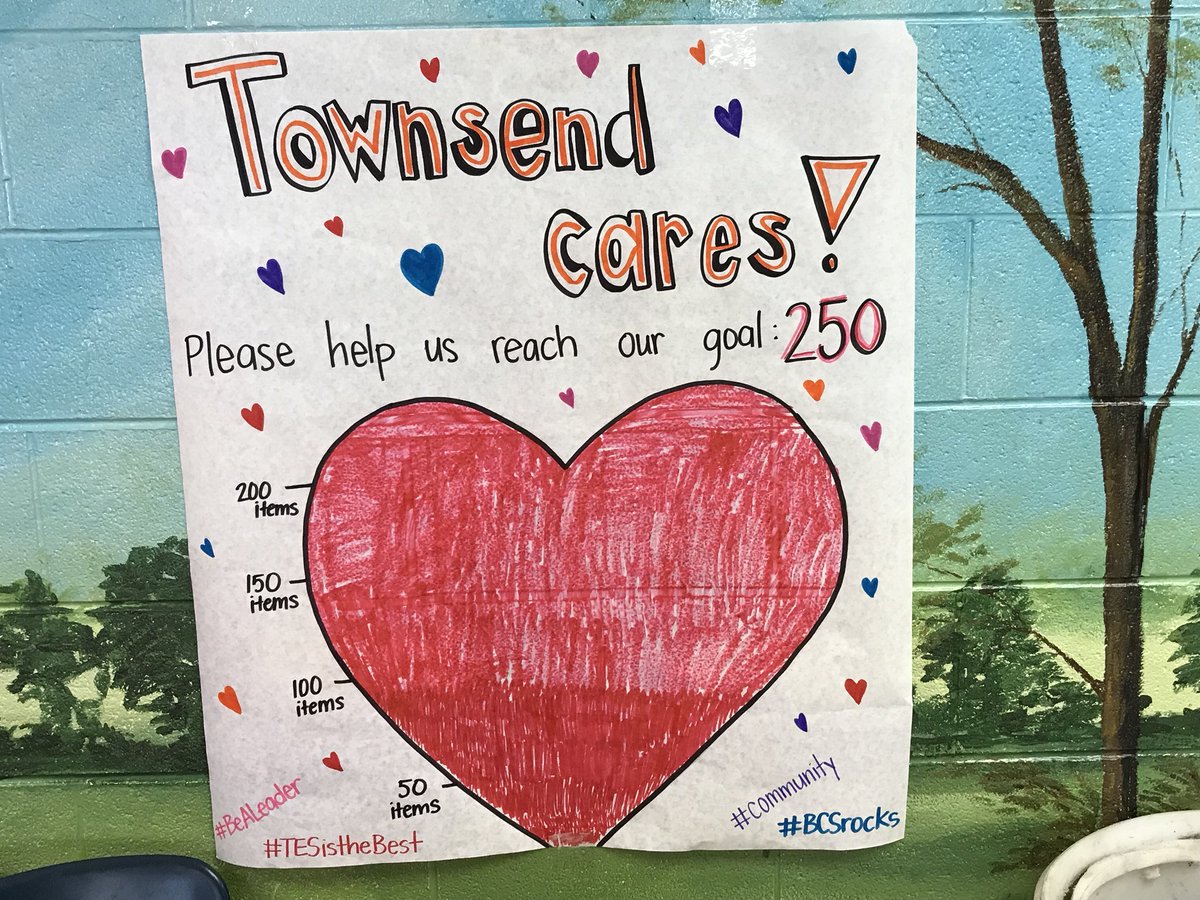 Townsend
cares!
Please help us reach our goal: 250
200
items
150
items
100
items
50
items
#BeALeader
#TESistheBest
#community
#BCSrocks